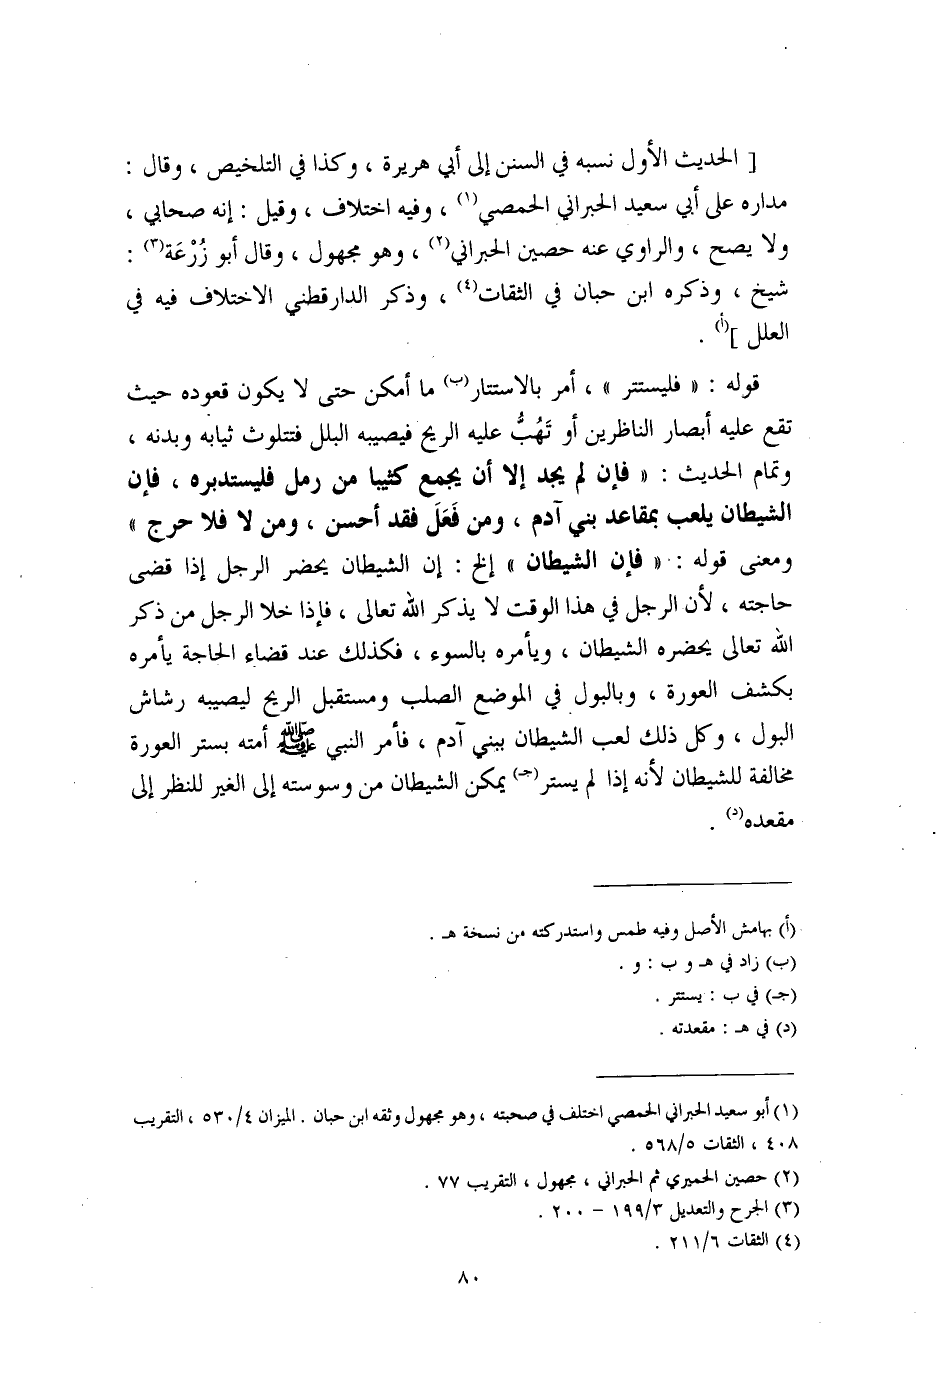 [ الحديث الأول نسبه في السنن إلى أبي هريرة ، وكذا في التلخيص ، وقال :
مداره على أبي سعيد الحبراني الحمصي(١) ، وفيه اختلاف ، وقيل : إنه صحابي ،
ولا يصح ، والراوي عنه حصين الحبراني(٢) ، وهو مجهول ، وقال أبو زُرْعَة(٣) :
شيخ ، وذكره ابن حبان في الثقات(٤) ، وذكر الدارقطني الاختلاف فيه في
العلل ](أ) .
قوله : « فليستتر » ، أمر بالاستتار(ب) ما أمكن حتى لا يكون قعوده حيث
تقع عليه أبصار الناظرين أو تَهُبُّ عليه الريح فيصيبه البلل فتتلوث ثيابه وبدنه ،
وتمام الحديث : « فإن لم يجد إلا أن يجمع كثيبا من رمل فليستدبره ، فإن
الشيطان يلعب بمقاعد بني آدم ، ومن فَعَلَ فقد أحسن ، ومن لا فلا حرج »
ومعنى قوله : « فإن الشيطان » إلخ : إن الشيطان يحضر الرجل إذا قضى
حاجته ، لأن الرجل في هذا الوقت لا يذكر الله تعالى ، فإذا خلا الرجل من ذكر
الله تعالى يحضره الشيطان ، ويأمره بالسوء ، فكذلك عند قضاء الحاجة يأمره
بكشف العورة ، وبالبول في الموضع الصلب ومستقبل الريح ليصيبه رشاش
البول ، وكل ذلك لعب الشيطان ببني آدم ، فأمر النبي ﷺ أمته بستر العورة
مخالفة للشيطان لأنه إذا لم يستر(جـ) يمكن الشيطان من وسوسته إلى الغير للنظر إلى
مقعده(د) .
(أ) بهامش الأصل وفيه طمس واستدركته من نسخة هـ .
(ب) زاد في هـ و ب : و .
(جـ) في ب : يستتر .
(د) في هـ : مقعدته .
(١) أبو سعيد الحبراني الحمصي اختلف في صحبته ، وهو مجهول وثقه ابن حبان . الميزان ٥٣٠/٤ ، التقريب
٤٠٨ ، الثقات ٥٦٨/٥ .
(٢) حصين الحميري ثم الحبراني ، مجهول ، التقريب ٧٧ .
(٣) الجرح والتعديل ١٩٩/٣ – ٢٠٠ .
(٤) الثقات ٢١١/٦ .
٨٠